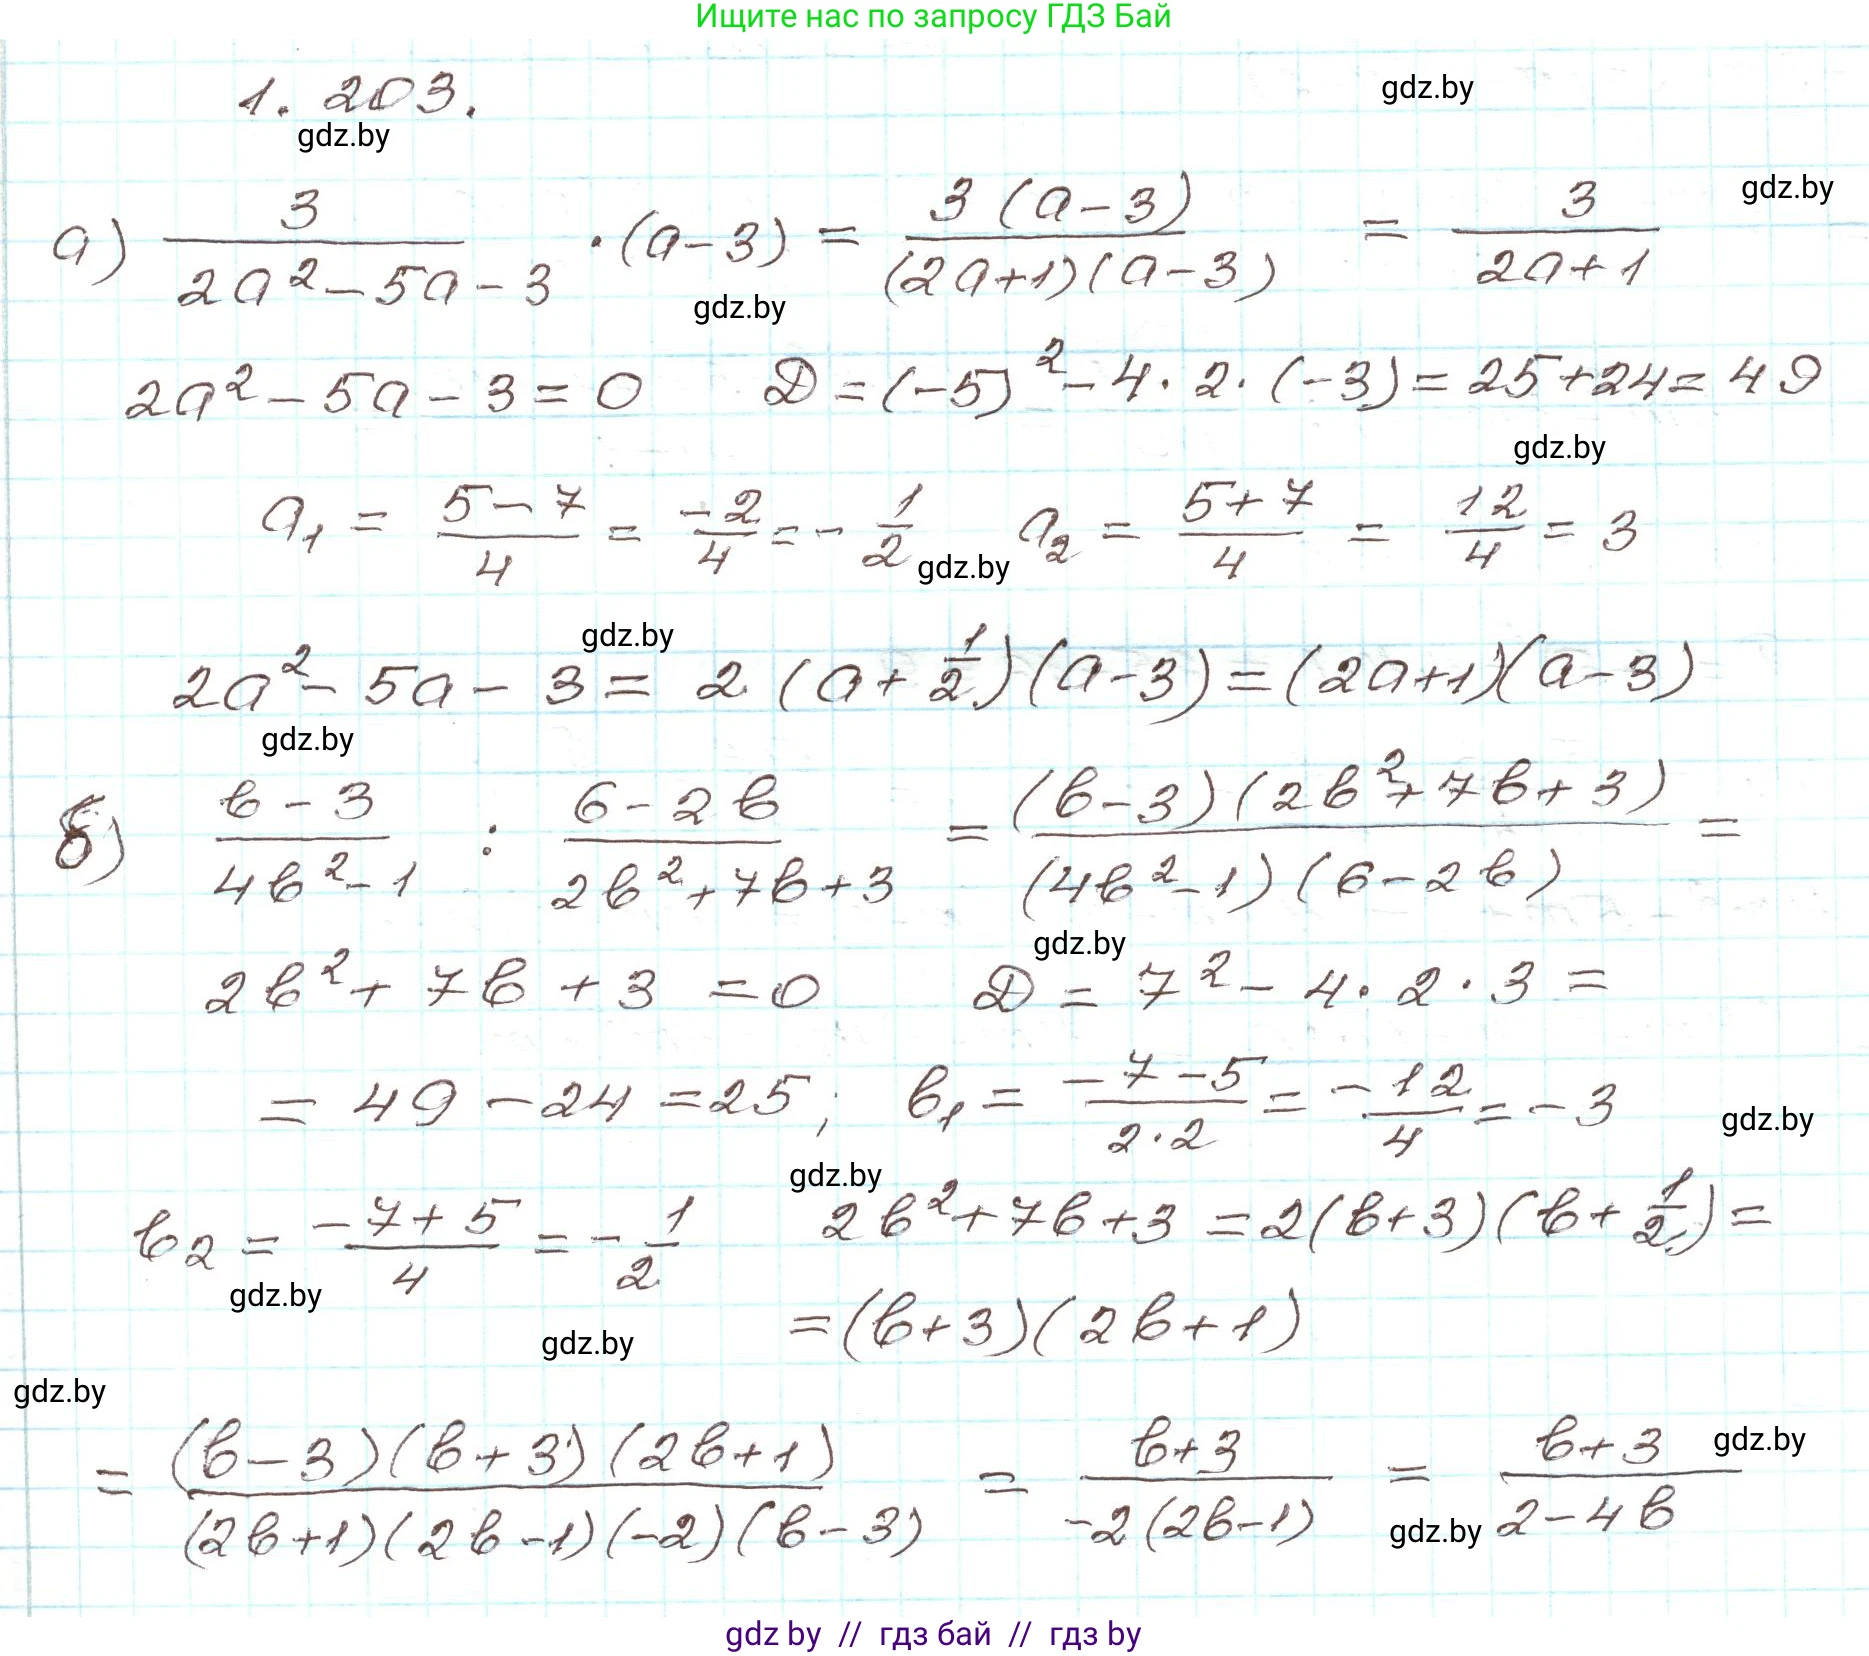 Ищите нас по запросу ГДЗ Бай
1. 203.
gdz.by
gdz.by
а) 3/(2a² - 5a - 3) · (a - 3) = 3(a - 3)/((2a+1)(a - 3)) = 3/(2a+1)
gdz.by
gdz.by
2a² - 5a - 3 = 0 D = (-5)² - 4 · 2 · (-3) = 25 + 24 = 49
gdz.by
a₁ = (5 - 7)/4 = -2/4 = - 1/2 a₂ = (5 + 7)/4 = 12/4 = 3
gdz.by
gdz.by
2a² - 5a - 3 = 2(a + 1/2)(a - 3) = (2a+1)(a - 3)
gdz.by
б) (b - 3)/(4b² - 1) : (6 - 2b)/(2b² + 7b + 3) = (b - 3)(2b² + 7b + 3)/((4b² - 1)(6 - 2b)) =
gdz.by
2b² + 7b + 3 = 0 D = 7² - 4 · 2 · 3 =
= 49 - 24 = 25; b₁ = (-7 - 5)/(2·2) = -12/4 = -3
gdz.by
gdz.by
b₂ = (-7 + 5)/4 = - 1/2 2b² + 7b + 3 = 2(b+3)(b + 1/2) =
gdz.by
= (b+3)(2b+1)
gdz.by
gdz.by
= (b - 3)(b + 3)(2b+1)/((2b+1)(2b - 1)(-2)(b - 3)) = (b+3)/(-2(2b-1)) = (b+3)/(2 - 4b)
gdz.by
gdz.by
gdz by // гдз бай // гдз by